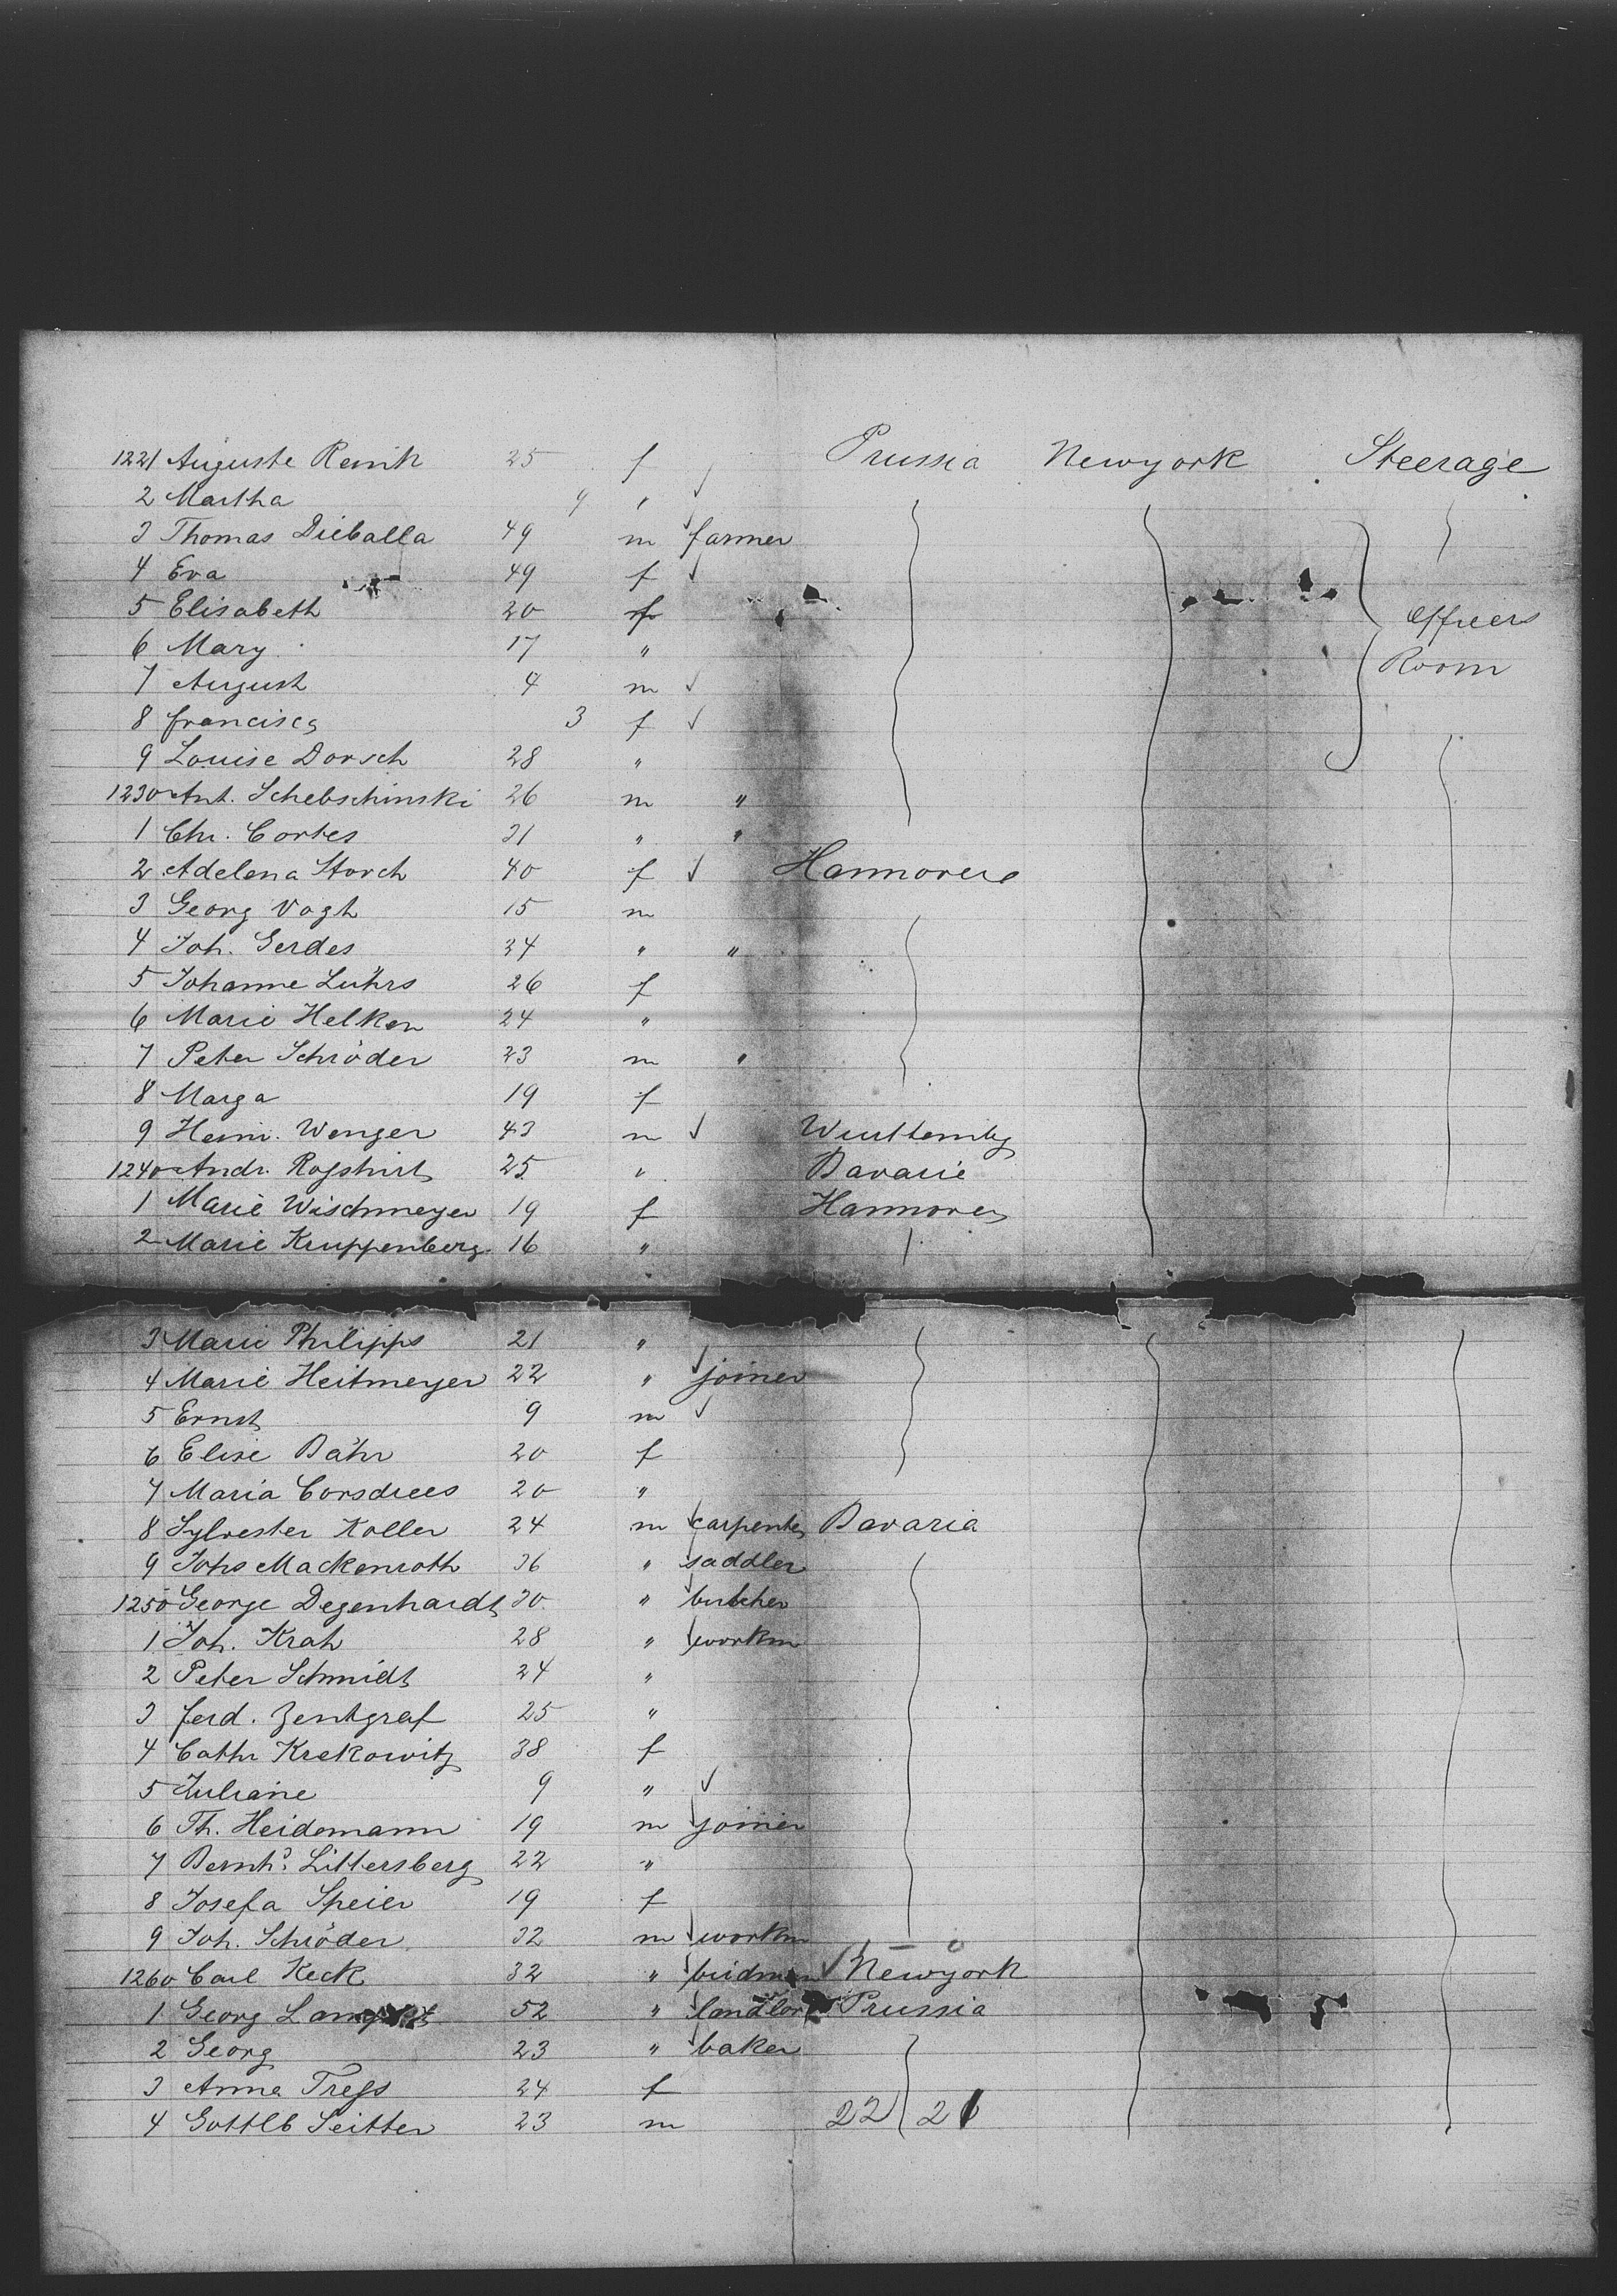 1221 Auguste Renik 25 f Prussia Newyork Steerage
2 Martha 9 "
3 Thomas Dieballa 49 m farmer
4 Eva 49 f
5 Elisabeth 20 f Officers
6 Mary 17 " Room
7 August 4 m
8 Francisca 3 f
9 Louise Dorsch 28 "
1230 Ant. Schebschinski 26 m "
1 Chr. Cortes 31 " "
2 Adelena Storch 40 f Hannover
3 Georg Vogt 15 m
4 Joh. Gerdes 34 " "
5 Johanne Lührs 26 f
6 Marie Helken 24 "
7 Peter Schröder 23 m "
8 Marga 19 f
9 Heinr. Wenger 43 m Württembg
1240 Andr. 25 " Bavarie
1 Marie Wischmeyer 19 f Hannover
2 Marie Kruppenberg 16 "
3 Marie Philipps 21 "
4 Marie Heitmeyer 22 " joiner
5 Ernst 9 m
6 Elise Bähr 20 f
7 Maria Corsdrees 20 "
8 Sylvester Koller 24 m carpenter Bavaria
9 Johs Mackenroth 36 " saddler
1250 George Degenhardt 30 " butcher
1 Joh. Krah 28 " workm
2 Peter Schmidt 24 "
3 Ferd. Zentgraf 25 "
4 Cathr Krekowitz 38 f
5 Juliane 9 "
6 Th. Heidemann 19 m joiner
7 Bernhd. Littersberg 22 "
8 Josefa Speier 19 f
9 Joh. Schröder 32 m workm
1260 Carl Keck 32 " Newyork
1 Georg 52 " landlord Prussia
2 Georg 23 " baker
3 Anna 24 f
4 Gottlb Seitter 23 m 22 21